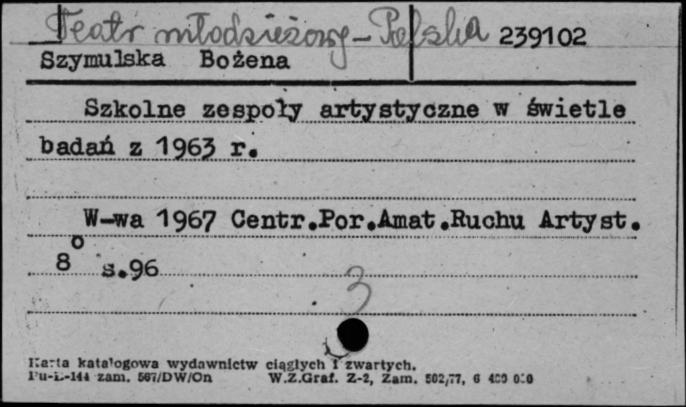 Teatr młodzieżowy - Polska 239102
Szymulska Bożena
Szkolne zespoły artystyczne w świetle
badań z 1963 r.
W-wa 1967 Centr.Por.Amat.Ruchu Artyst.
8° s.96
3
Karta katalogowa wydawnictw ciągłych i zwartych.
Pu-L-144 zam. 567/DW/On W.Z.Graf. Z-2, Zam. 502/77, 6 400 000